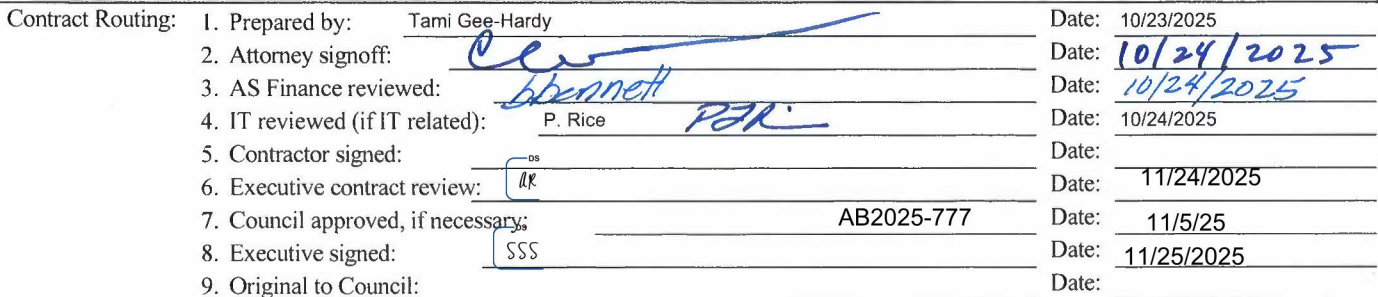 Contract Routing: 1. Prepared by: Tami Gee-Hardy Date: 10/23/2025
2. Attorney signoff: Date: 10/24/2025
3. AS Finance reviewed: bbennett Date: 10/24/2025
4. IT reviewed (if IT related): P. Rice Date: 10/24/2025
5. Contractor signed: Date:
6. Executive contract review: DS AR Date: 11/24/2025
7. Council approved, if necessary: AB2025-777 Date: 11/5/25
8. Executive signed: DS SSS Date: 11/25/2025
9. Original to Council: Date: